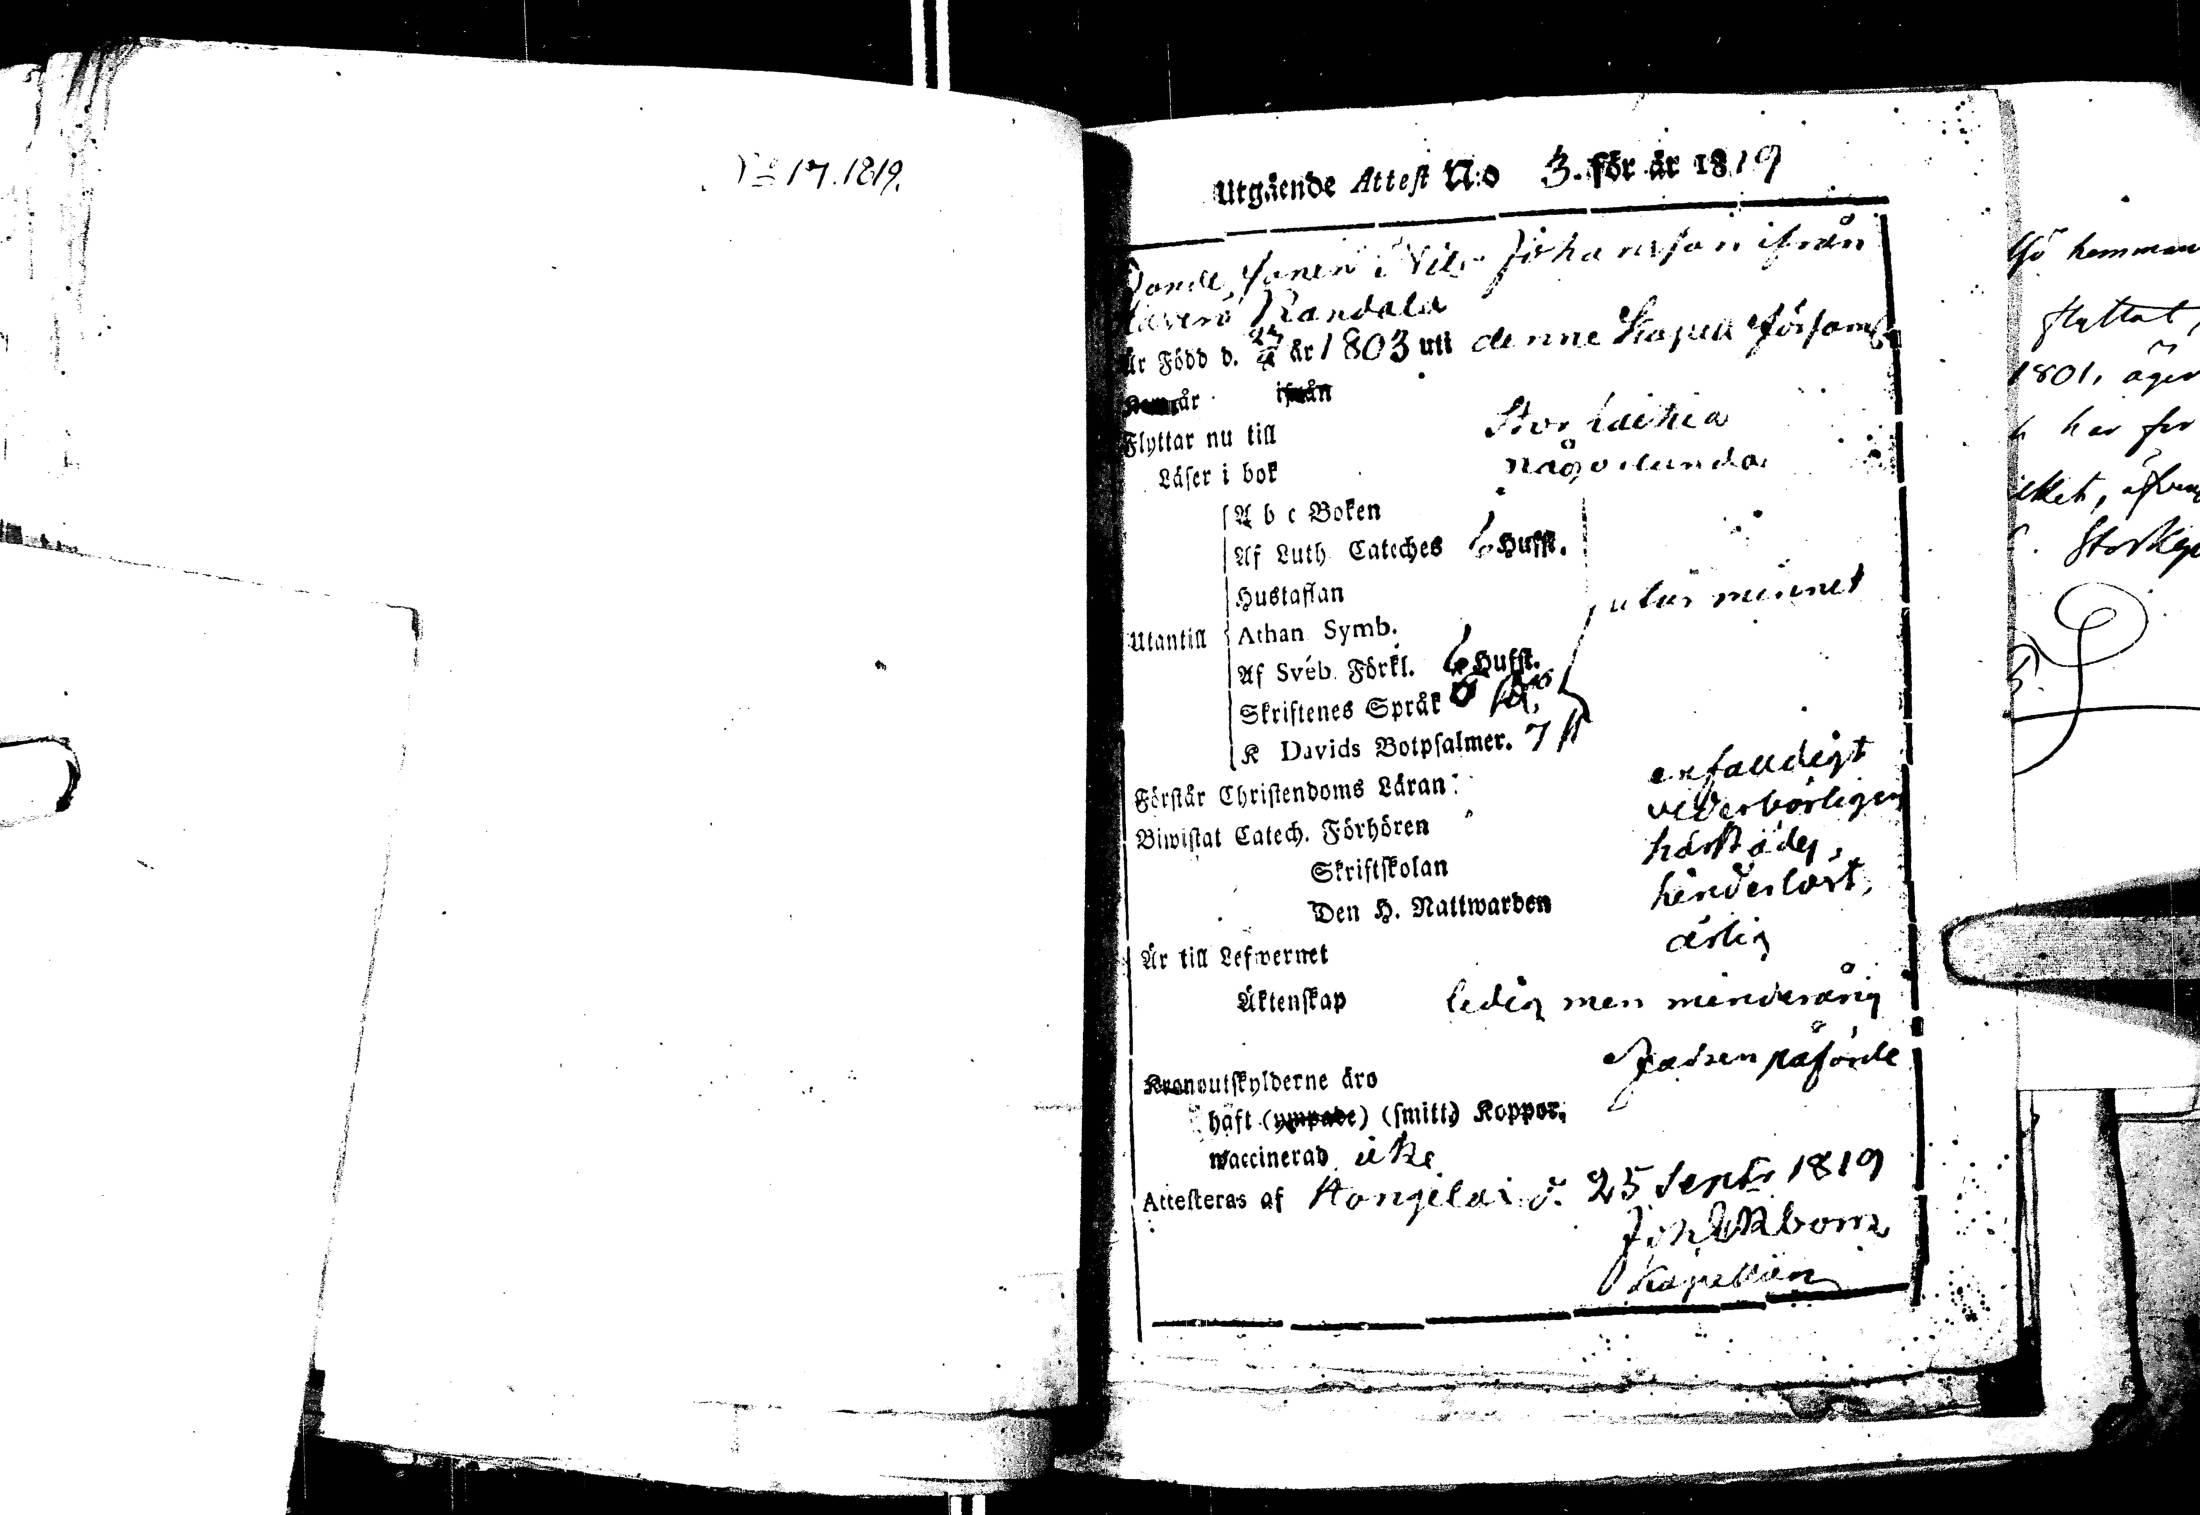 No 17. 1819.
Utgående Attest N:o 3. för år 1819
Bonde Sonen Nils Johansson ifrån
Randala
Är Född d. 27 år 1803 uti denne Kapell Församl
år ifrån
Flyttar nu till Storkaikia
Läser i bok någorlunda
A b c Boken
Af Luth. Cateches 6 Hufst.
Hustaflan
utur minnet
Utantill Athan. Symb.
Af Sveb. Förkl. 6 Hufst.
Skriftenes Språk
K Davids Botpsalmer. 7 st
Förstår Christendoms Läran: enfalldigt
Biwistat Catech. Förhören vederbörligen
Skriftskolan härstädes,
Den H. Nattwarden hinderlöst,
Är till Lefwernet ärlig
Äktenskap ledig men minderårig
Kronoutskylderne äro påförde
haft (ympade) (smitt.) Koppor.
waccinerad icke
Attesteras af Hongilax d. 25 Septr 1819
Joh Ekbom
Kapellan
hemman
flyttat,
1801. äger
har för